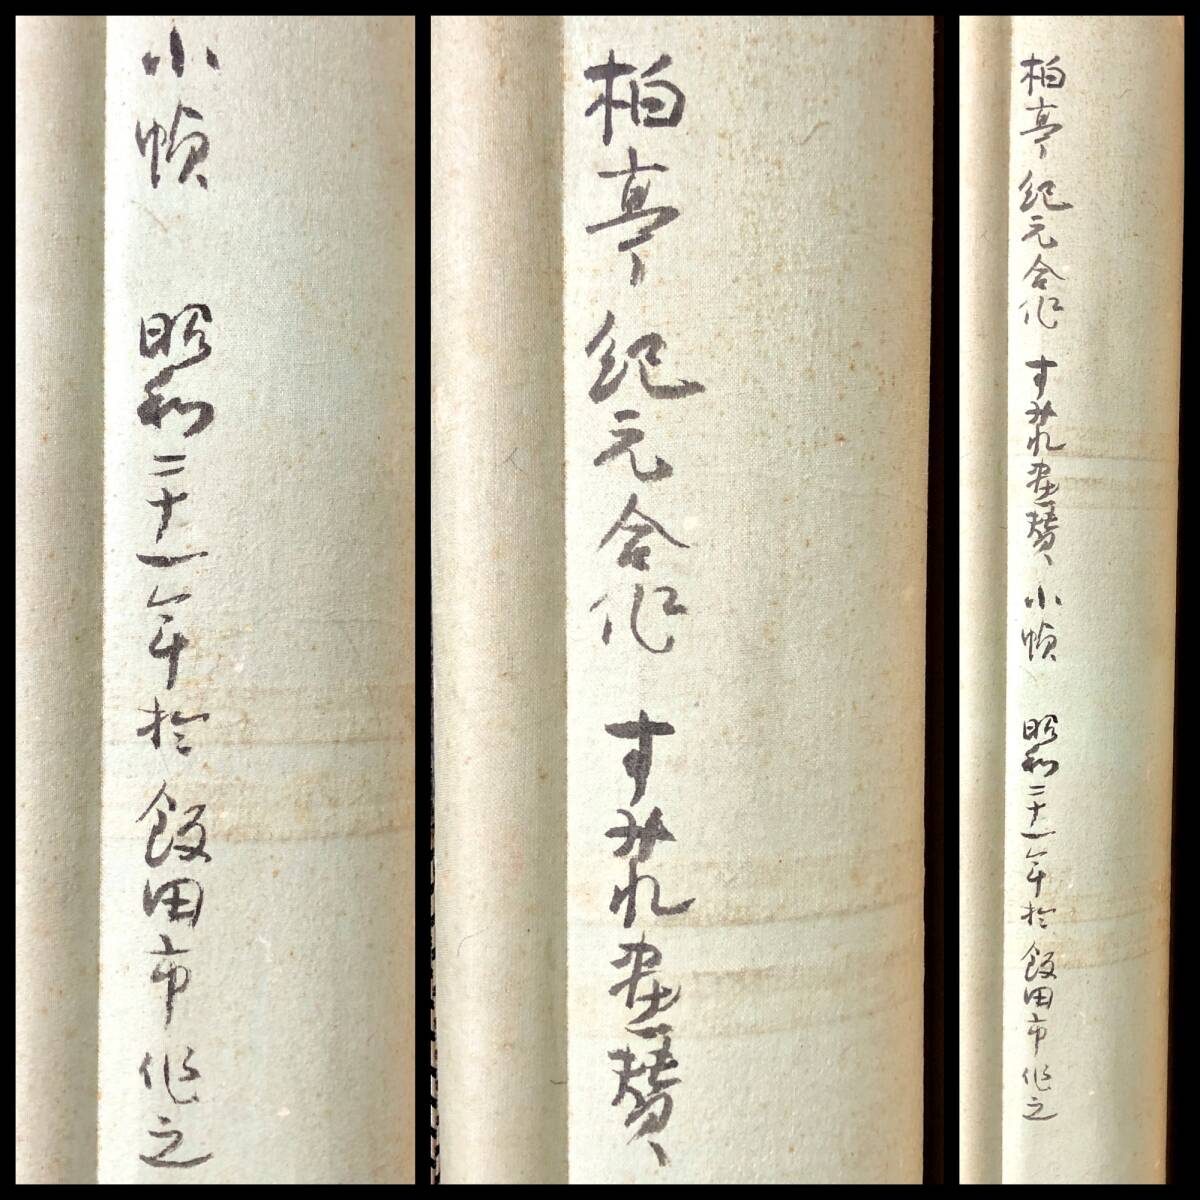 小幀 昭和二十一年於飯田市作之
柏亭紀元合作 すみれ画賛
柏亭紀元合作 すみれ画賛 小幀 昭和二十一年於飯田市作之